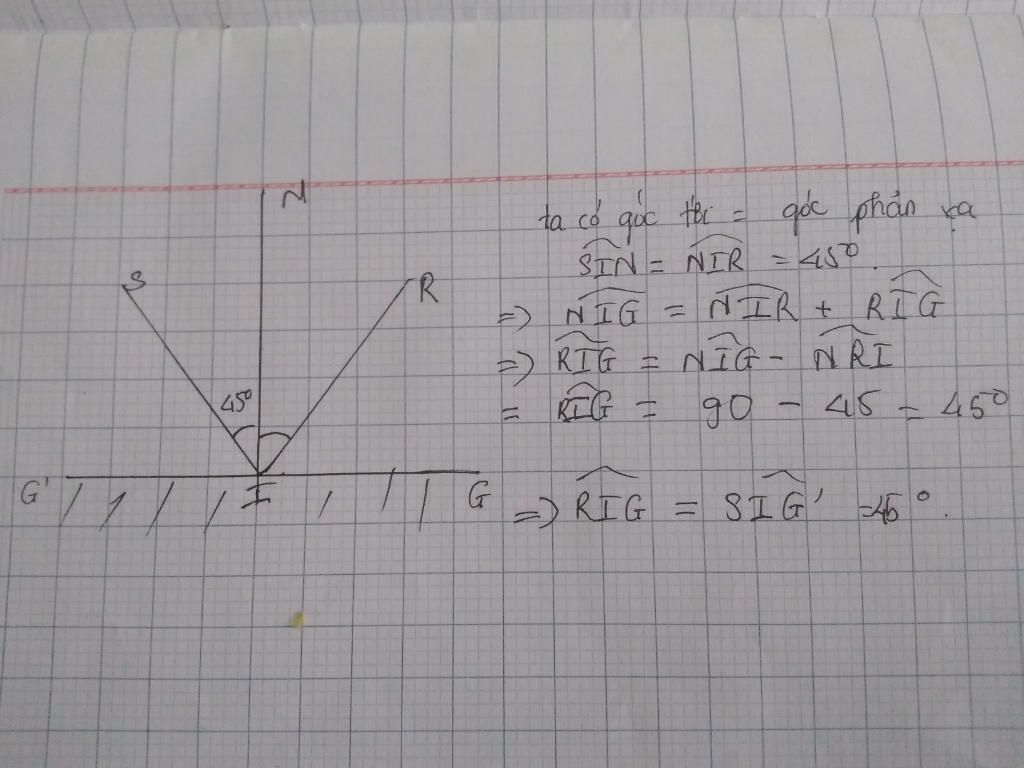 N
S
R
45°
G'
I
G
ta có góc tới = góc phản xạ
SIN = NIR = 45°.
=> NIG = NIR + RIG
=> RIG = NIG - NRI
= RIG = 90 - 45 = 45°
=> RIG = SIG' = 45°.